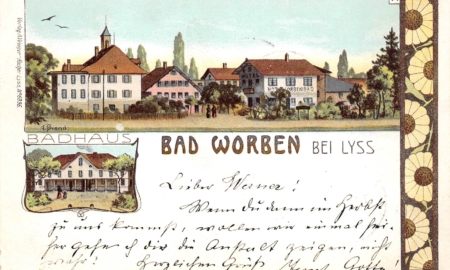 BADHAUS
BAD WORBEN BEI LYSS
Lieber Werner!
Wenn du dann im Herbst
zu uns kommst, wollen wir einmal
dir die Anstalt zeigen, nicht
wahr! Herzlichen Gruß